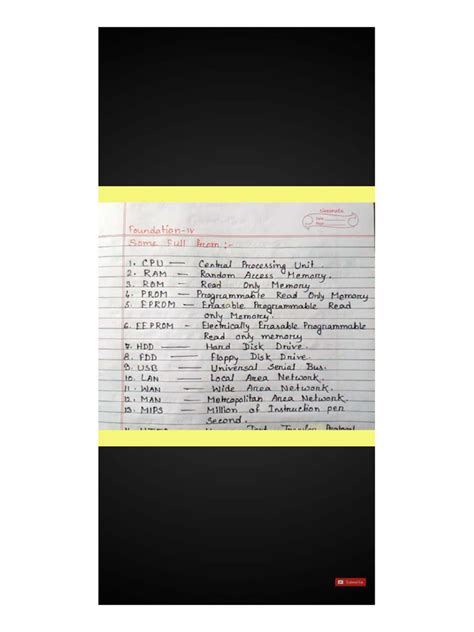 classmate
Date
Page
Foundation-IV
Some Full Form :-
1. CPU — Central Processing Unit
2. RAM — Random Access Memory.
3. ROM — Read Only Memory
4. PROM — Programmable Read Only Memory
5. EPROM — Erasable Programmable Read
only Memory.
6. EEPROM - Electrically Erasable Programmable
Read only memory
7. HDD — Hard Disk Drive.
8. FDD — Floppy Disk Drive.
9. USB — Universal Serial Bus.
10. LAN — Local Area Network.
11. WAN — Wide Area Network.
12. MAN — Metropolitan Area Network.
13. MIPS — Million of Instruction per
Second.
Text Transfer Protocol
Subscribe